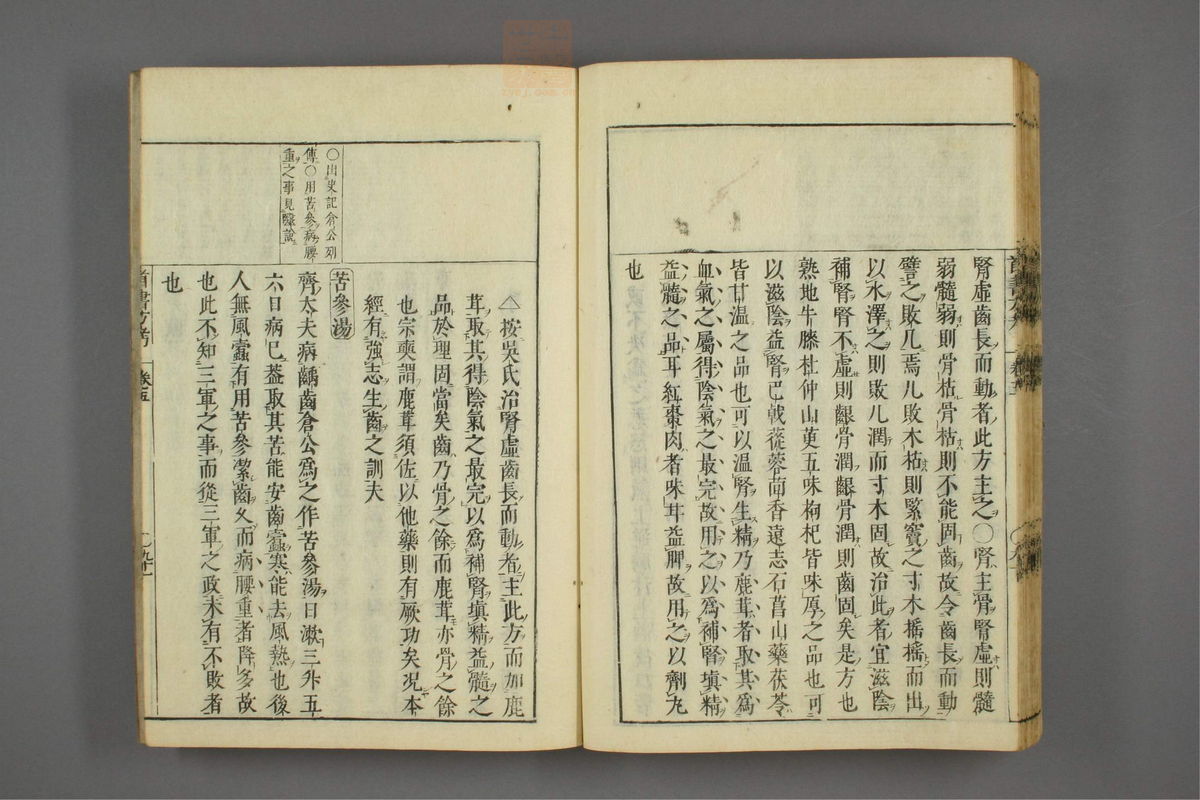 腎虛齒長而動者此方主之○腎主骨腎虛則髓
弱髓弱則骨枯骨枯則不能固齒故令齒長而動
譬之敗几焉几敗木枯則緊竇之寸木搖搖而出
以水澤之則敗几潤而寸木固故治此者宜滋陰
補腎腎不虛則齦骨潤齦骨潤則齒固矣是方也
熟地牛膝杜仲山茰五味枸杞皆味厚之品也可
以滋陰益腎巴戟蓯蓉茴香遠志石菖山藥茯苓
皆甘溫之品也可以溫腎生精乃鹿茸者取其爲
血氣之屬得陰氣之最完故用之以爲補腎塡精
益髓之品耳紅棗肉者味甘益脾故用之以劑丸
也
△按吳氏治腎虛齒長而動者主此方而加鹿
茸取其得陰氣之最完以爲補腎塡精益髓之
品於理固當矣齒乃骨之餘而鹿茸亦骨之餘
也宗奭謂鹿茸須佐以他藥則有厥功矣况本
經有強志生齒之訓夫
苦參湯
齊太夫病齲齒倉公爲之作苦參湯日漱三升五
六日病已蓋取其苦能安齒蠹寒能去風熱也後
人無風蠹有用苦參潔齒久而病腰重者降多故
也此不知三軍之事而從三軍之政未有不敗者
也
○出史記倉公列
傳○用苦參病腰
重之事見醫說